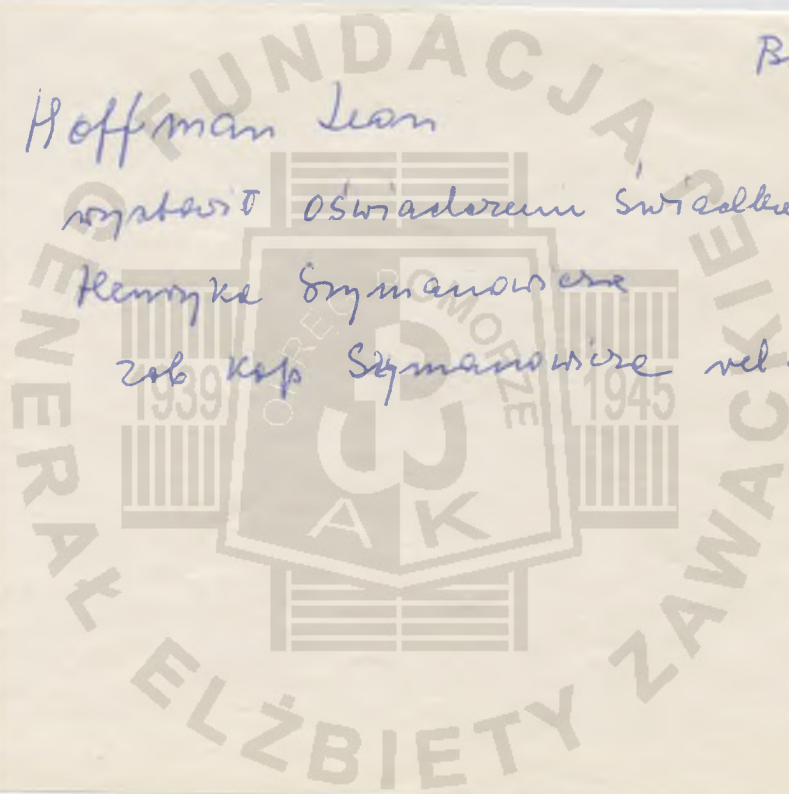 B
Hoffman Leon
wystawił oświadczenie świadka
Henryka Szymanowicza
zob kop Szymanowicza vel
FUNDACJA GENERAŁ ELŻBIETY ZAWACKIEJ
OKRĘG POMORZE
1939 1945
AK